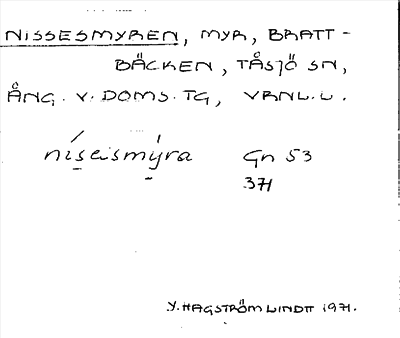 NISSESMYREN, MYR, BRATT-
BÄCKEN, TÅSJÖ SN,
ÅNG. V. DOMS. TG, VRNL. U.
níseismýra Gn 53
371
Y. HAGSTRÖM LINDTT 1971.